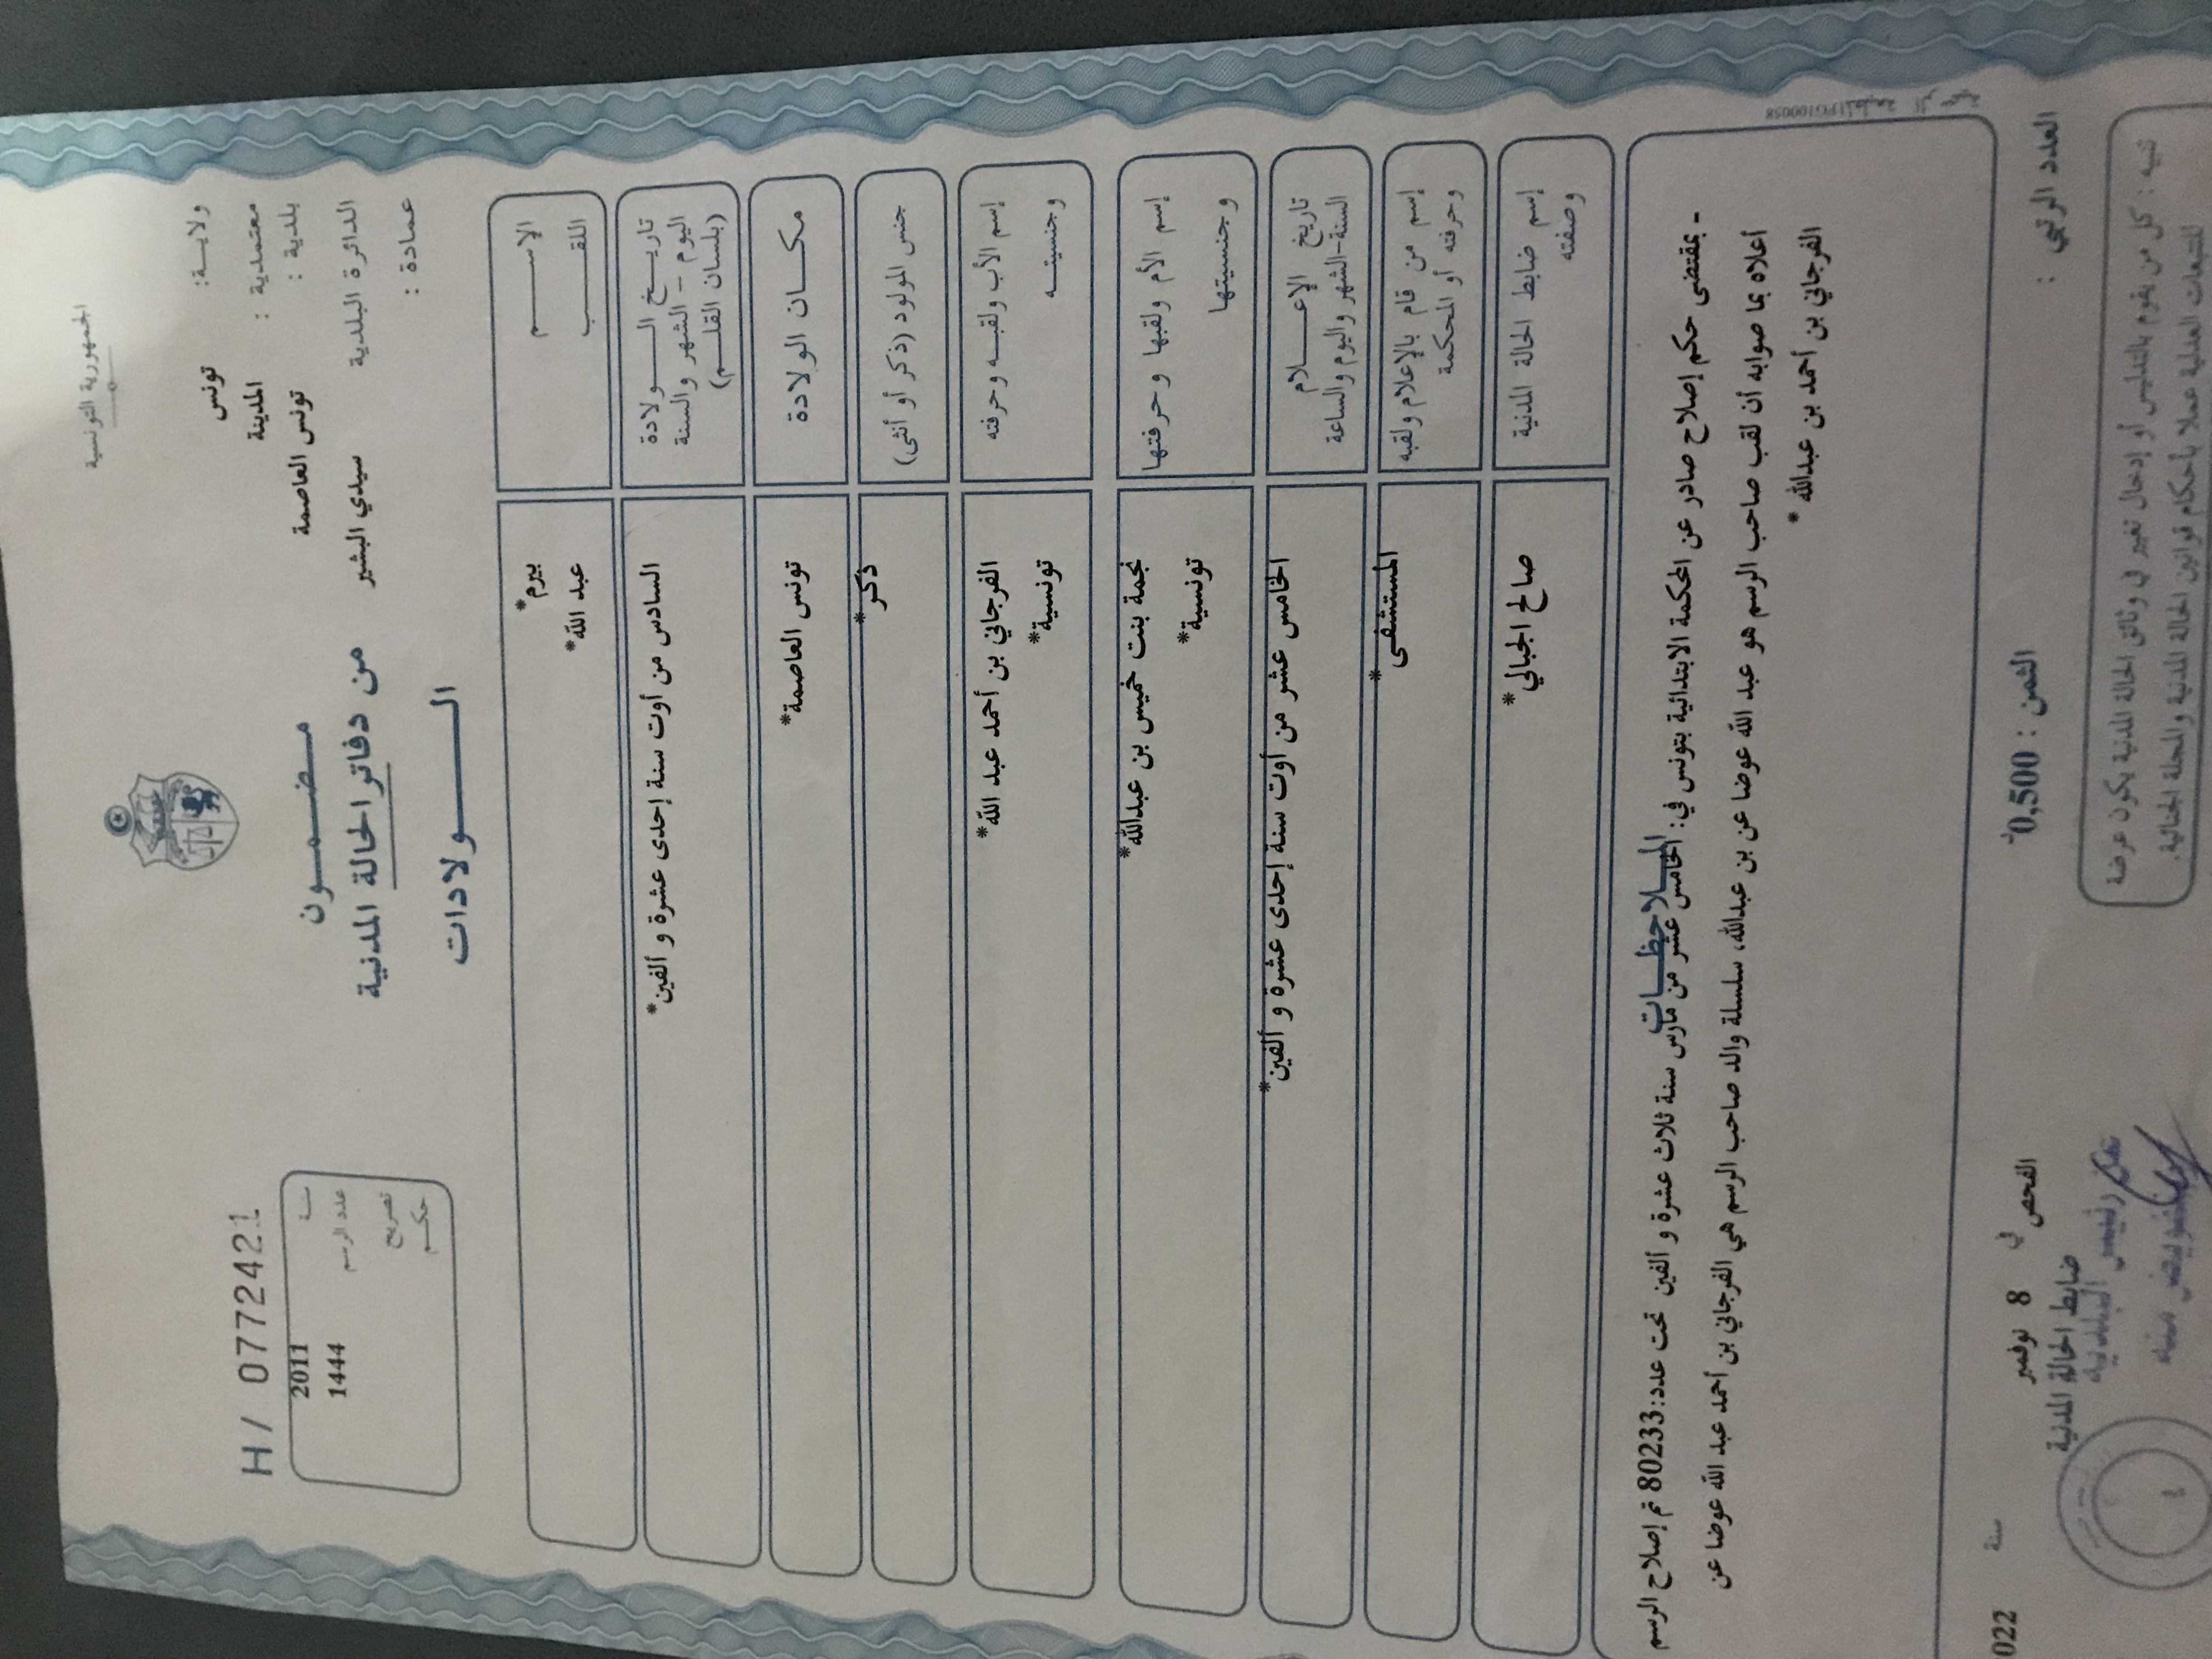 الجمهورية التونسية
ولاية: تونس
معتمدية : المدينة
بلدية : تونس العاصمة
الدائرة البلدية سيدي البشير
عمادة :
مضمون
من دفاتر الحالة المدنية
الولادات
H / 07724421
سنة 2011
عدد الرسم 1444
تصريح
حكم
الإسم بيرم*
اللقب عبد الله*
تاريخ الولادة
اليوم – الشهر والسنة
(بلسان القلم)
السادس من أوت سنة إحدى عشرة و ألفين*
مكان الولادة تونس العاصمة*
جنس المولود (ذكر أو أنثى) ذكر*
إسم الأب ولقبه وحرفته الفرجاني بن أحمد عبد الله*
وجنسيته تونسية*
إسم الأم ولقبها وحرفتها نجمة بنت خميس بن عبدالله*
وجنسيتها تونسية*
تاريخ الإعلام
السنة-الشهر واليوم والساعة
الخامس عشر من أوت سنة إحدى عشرة و ألفين*
إسم من قام بالإعلام ولقبه
وحرفته أو المحكمة
المستشفى*
إسم ضابط الحالة المدنية
وصفته
صالح الجبالي*
الملاحظات
- بمقتضى حكم إصلاح صادر عن المحكمة الابتدائية بتونس في: الخامس عشر من مارس سنة ثلاث عشرة و ألفين تحت عدد:80233 تم إصلاح الرسم
أعلاه بما صوابه أن لقب صاحب الرسم هو عبد الله عوضا عن بن عبدالله، سلسلة والد صاحب الرسم هي الفرجاني بن أحمد عبد الله عوضا عن
الفرجاني بن أحمد بن عبدالله *
العدد الرتبي :
الثمن : 0,500د
الفحص في 8 نوفمبر سنة 022
ضابط الحالة المدنية
تنبيه : كل من يقوم بالتدليس أو إدخال تغيير في وثائق الحالة المدنية يكون عرضة
للتتبعات العدلية عملا بأحكام قوانين الحالة المدنية والمجلة الجنائية.